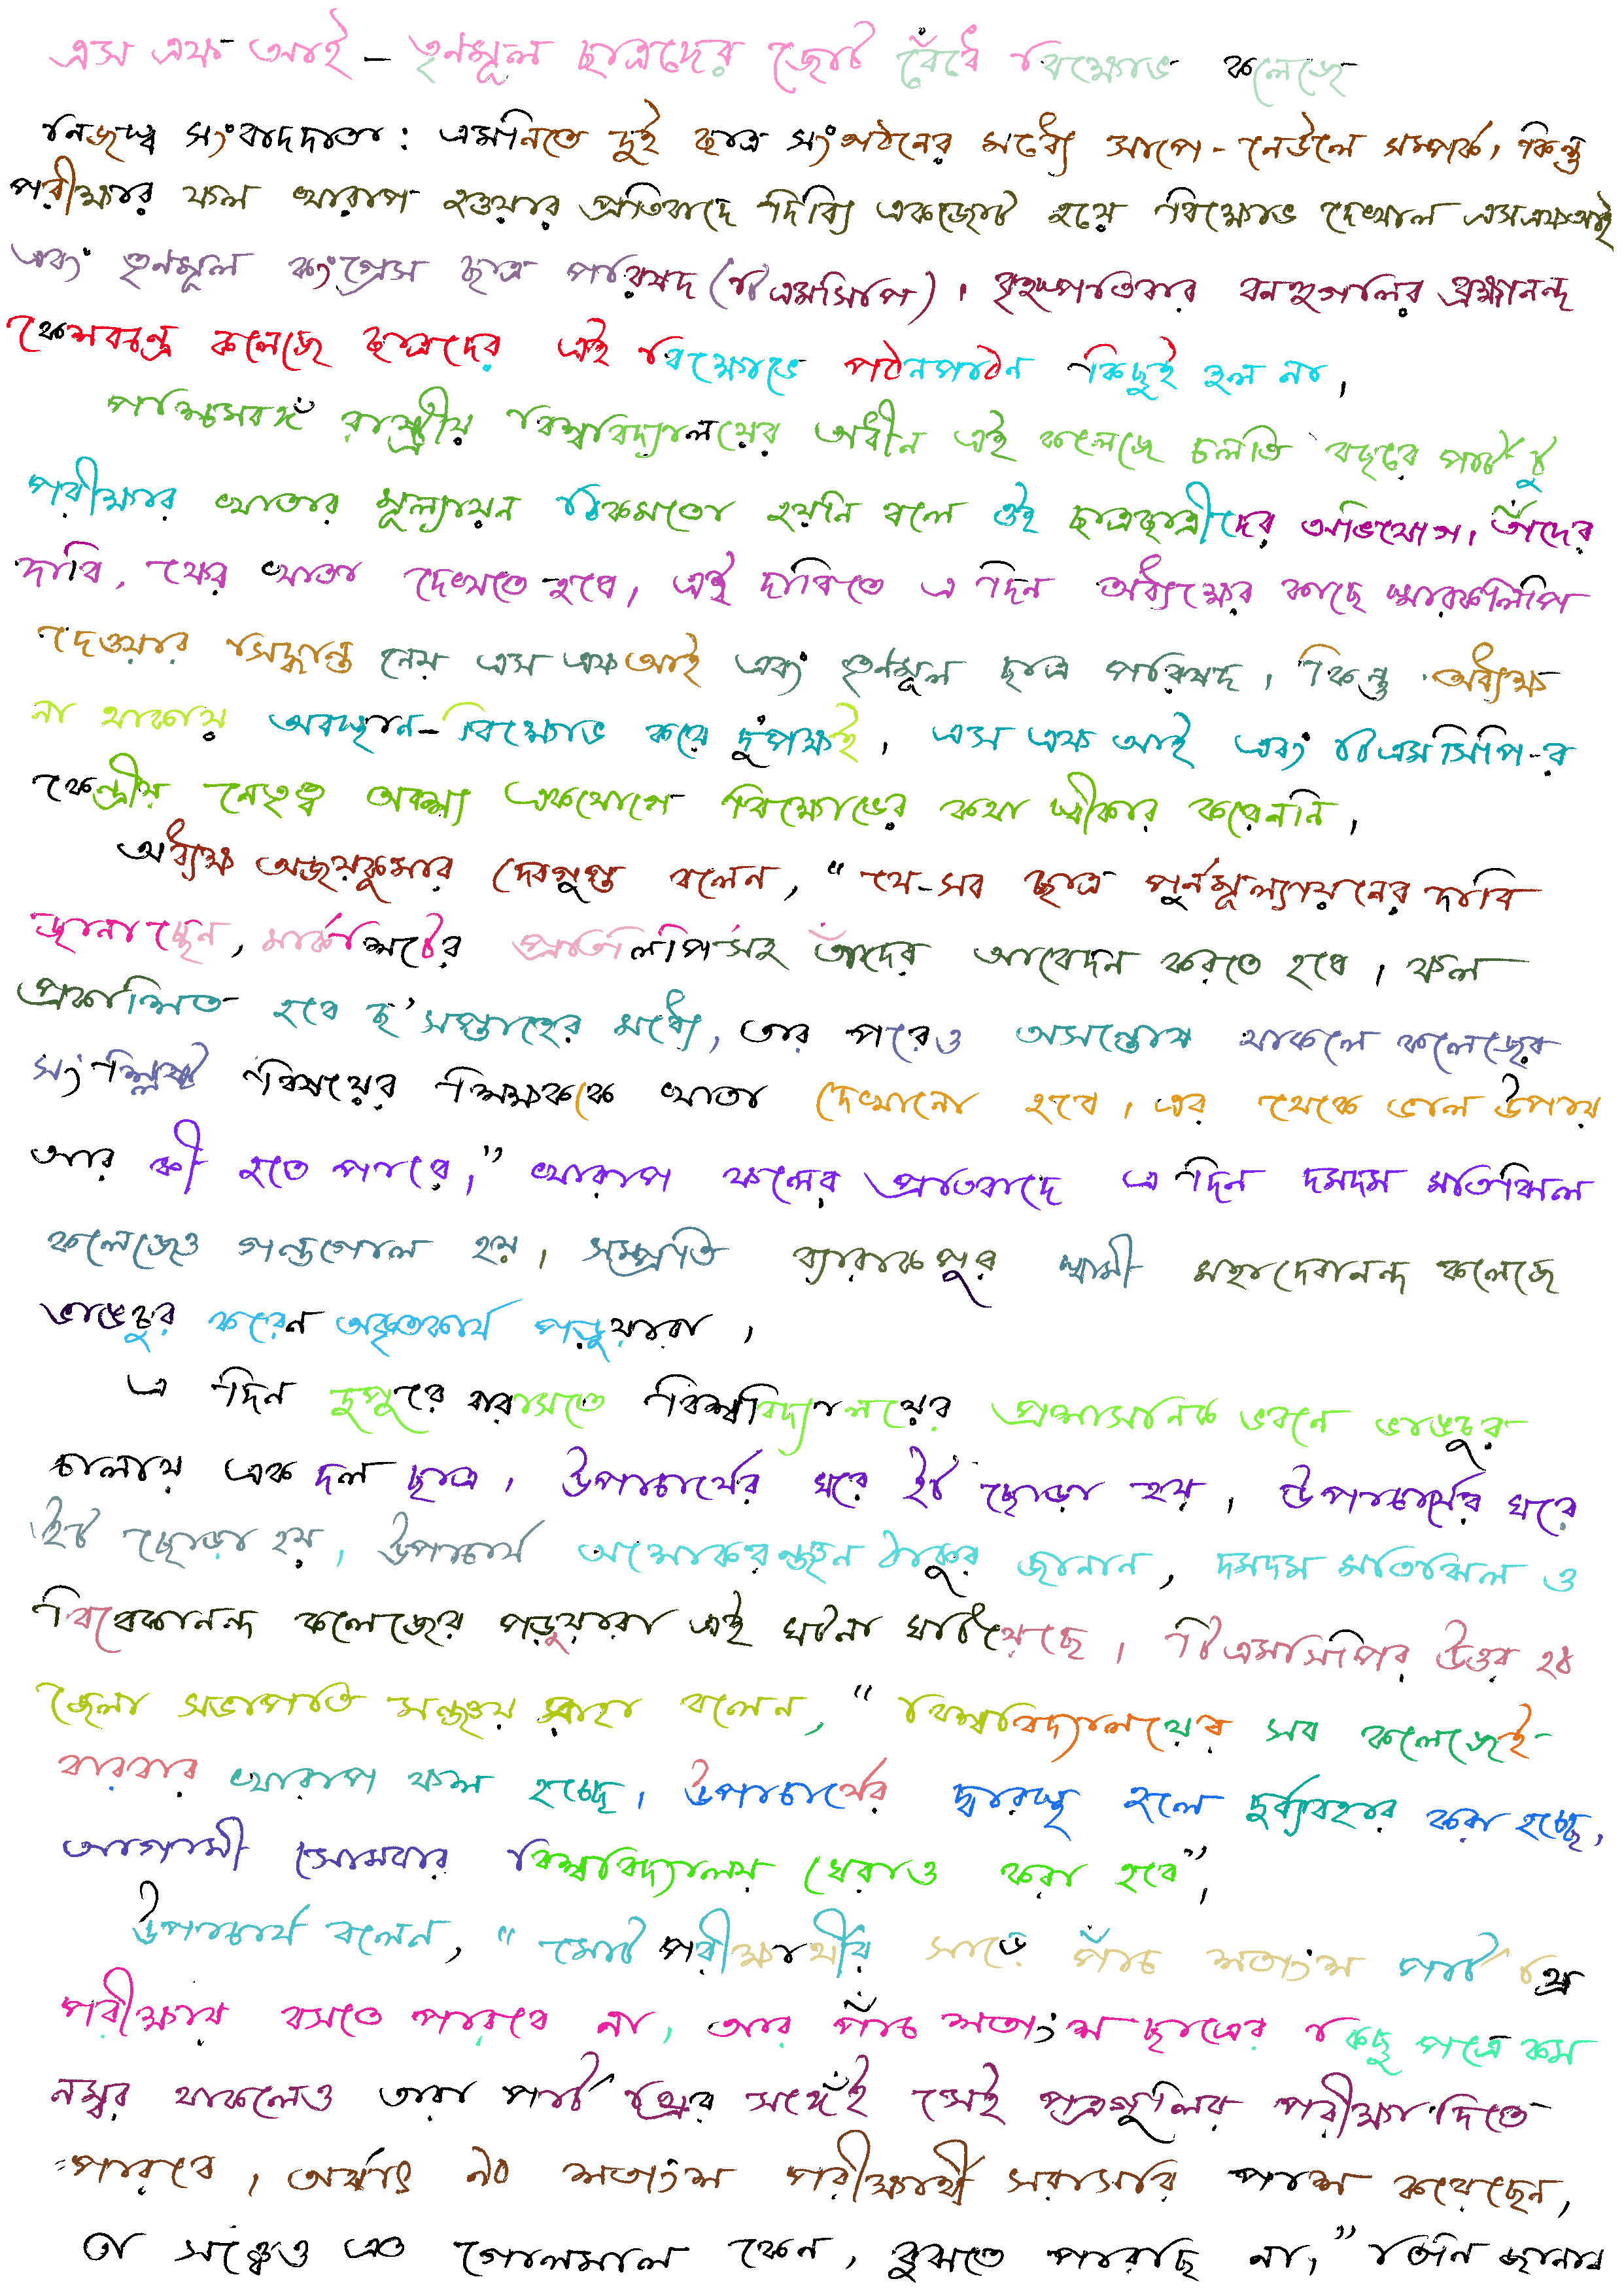 এস এফ আই - তৃণমূল ছাত্রদের জোট বেঁধে বিক্ষোভ কলেজে
নিজস্ব সংবাদদাতা : এমনিতে দুই ছাত্র সংগঠনের মধ্যে সাপে - নেউলে সম্পর্ক। কিন্তু
পরীক্ষার ফল খারাপ হওয়ার প্রতিবাদে দিব্যি একজোট হয়ে বিক্ষোভ দেখাল এসএফআই
এবং তৃণমূল কংগ্রেস ছাত্র পরিষদ (টিএমসিপি)। বৃহস্পতিবার বনহুগলির ব্রহ্মানন্দ
কেশবচন্দ্র কলেজে ছাত্রদের এই বিক্ষোভে পঠনপাঠন কিছুই হল না।
পশ্চিমবঙ্গ রাষ্ট্রীয় বিশ্ববিদ্যালয়ের অধীন এই কলেজে চলতি বছরে পার্ট টু
পরীক্ষার খাতার মূল্যায়ন ঠিকমতো হয়নি বলে ওই ছাত্রছাত্রীদের অভিযোগ। তাঁদের
দাবি, ফের খাতা দেখতে হবে। এই দাবিতে এ দিন অধ্যক্ষের কাছে স্মারকলিপি
দেওয়ার সিদ্ধান্ত নেয় এস এফ আই এবং তৃণমূল ছাত্র পরিষদ। কিন্তু অধ্যক্ষ
না থাকায় অবস্থান-বিক্ষোভ করে দু'পক্ষই। এস এফ আই এবং টিএমসিপি-র
কেন্দ্রীয় নেতৃত্ব অবশ্য একযোগে বিক্ষোভের কথা স্বীকার করেননি।
অধ্যক্ষ অজয়কুমার দেবগুপ্ত বলেন, “ যে-সব ছাত্র পুর্নমূল্যায়নের দাবি
জানাচ্ছেন, মার্কশিটের প্রতিলিপিসহ তাঁদের আবেদন করতে হবে। ফল
প্রকাশিত হবে ছ'সপ্তাহের মধ্যে, তার পরেও অসন্তোষ থাকলে কলেজের
সংশ্লিষ্ট বিষয়ের শিক্ষককে খাতা দেখানো হবে। এর থেকে ভাল উপায়
আর কী হতে পারে।” খারাপ ফলের প্রতিবাদে এ দিন দমদম মতিঝিল
কলেজেও গন্ডগোল হয়। সম্প্রতি ব্যারাকপুর স্বামী মহাদেবানন্দ কলেজে
ভাঙচুর করেন অকৃতকার্য পড়ুয়ারা।
এ দিন দুপুরে বারাসতে বিশ্ববিদ্যালয়ের প্রশাসনিক ভবনে ভাঙচুর
চালায় এক দল ছাত্র। উপাচার্যের ঘরে ইট ছোড়া হয়। উপাচার্যের ঘরে
ইট ছোড়া হয়। উপাচার্য অশোকরঞ্জন ঠাকুর জানান, দমদম মতিঝিল ও
বিবেকানন্দ কলেজের পড়ুয়ারা এই ঘটনা ঘটিয়েছে। টিএমসিপির উত্তর ২৪
জেলা সভাপতি মৃত্যুঞ্জয় সাহা বলেন, “ বিশ্ববিদ্যালয়ের সব কলেজেই
বারবার খারাপ ফল হচ্ছে। উপাচার্যের দ্বারস্থ হলে দুর্ব্যবহার করা হচ্ছে,
আগামী সোমবার বিশ্ববিদ্যালয় ঘেরাও করা হবে”।
উপাচার্য বলেন, “ মোট পরীক্ষার্থীর সাড়ে পাঁচ শতাংশ পার্ট থ্রি
পরীক্ষায় বসতে পারবে না। আর পাঁচ শতাংশ ছাত্রের কিছু পত্রে কম
নম্বর থাকলেও তারা পার্ট থ্রির সঙ্গেই সেই পত্রগুলির পরীক্ষা দিতে
পারবে। অর্থাৎ ৯০ শতাংশ পরীক্ষার্থী সরাসরি পাশ করেছেন,
তা সত্ত্বেও এত গোলমাল কেন, বুঝতে পারছি না।” তিনি জানান